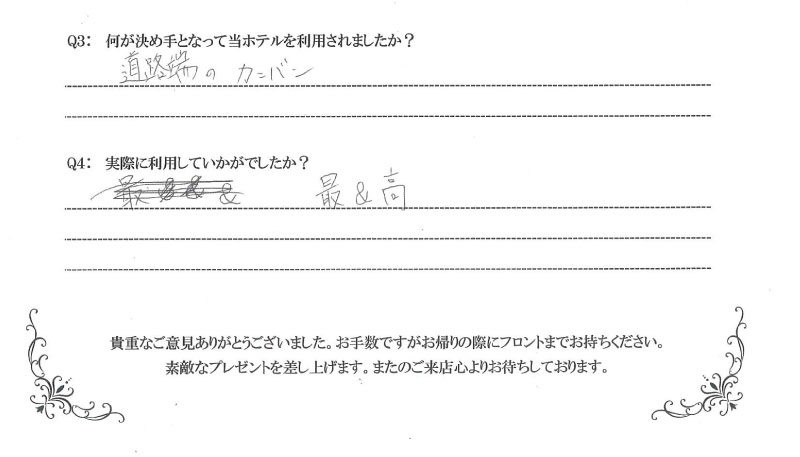 Q3: 何が決め手となって当ホテルを利用されましたか?
道路端の カンバン
Q4: 実際に利用していかがでしたか?
最 & 高
貴重なご意見ありがとうございました。お手数ですがお帰りの際にフロントまでお持ちください。
素敵なプレゼントを差し上げます。またのご来店心よりお待ちしております。